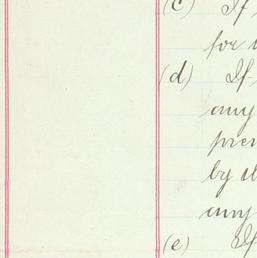 (c) If
for
(d) If
any
by
any
(e) If